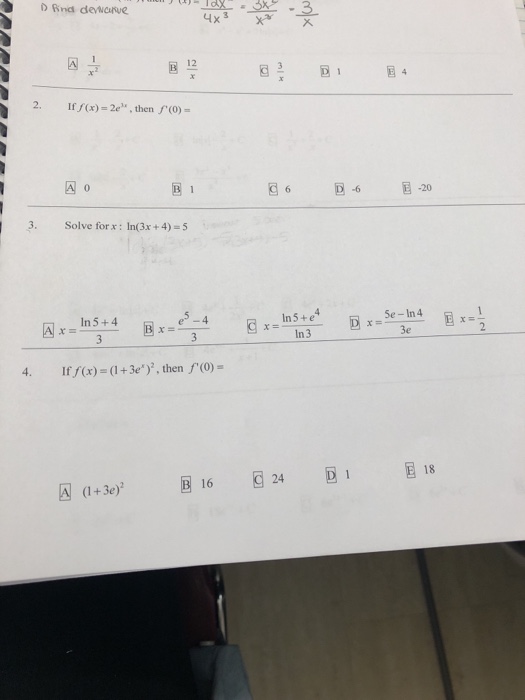 1) Find derivative 12x² / 4x³ = 3x² / x³ = 3 / x
A 1/x² B 12/x C 3/x D 1 E 4
2. If f(x) = 2e³ˣ, then f'(0) =
A 0 B 1 C 6 D -6 E -20
3. Solve for x: ln(3x + 4) = 5
A x = (ln 5 + 4)/3 B x = (e⁵ – 4)/3 C x = (ln 5 + e⁴)/ln 3 D x = (5e – ln 4)/3e E x = 1/2
4. If f(x) = (1 + 3eˣ)², then f'(0) =
A (1 + 3e)² B 16 C 24 D 1 E 18